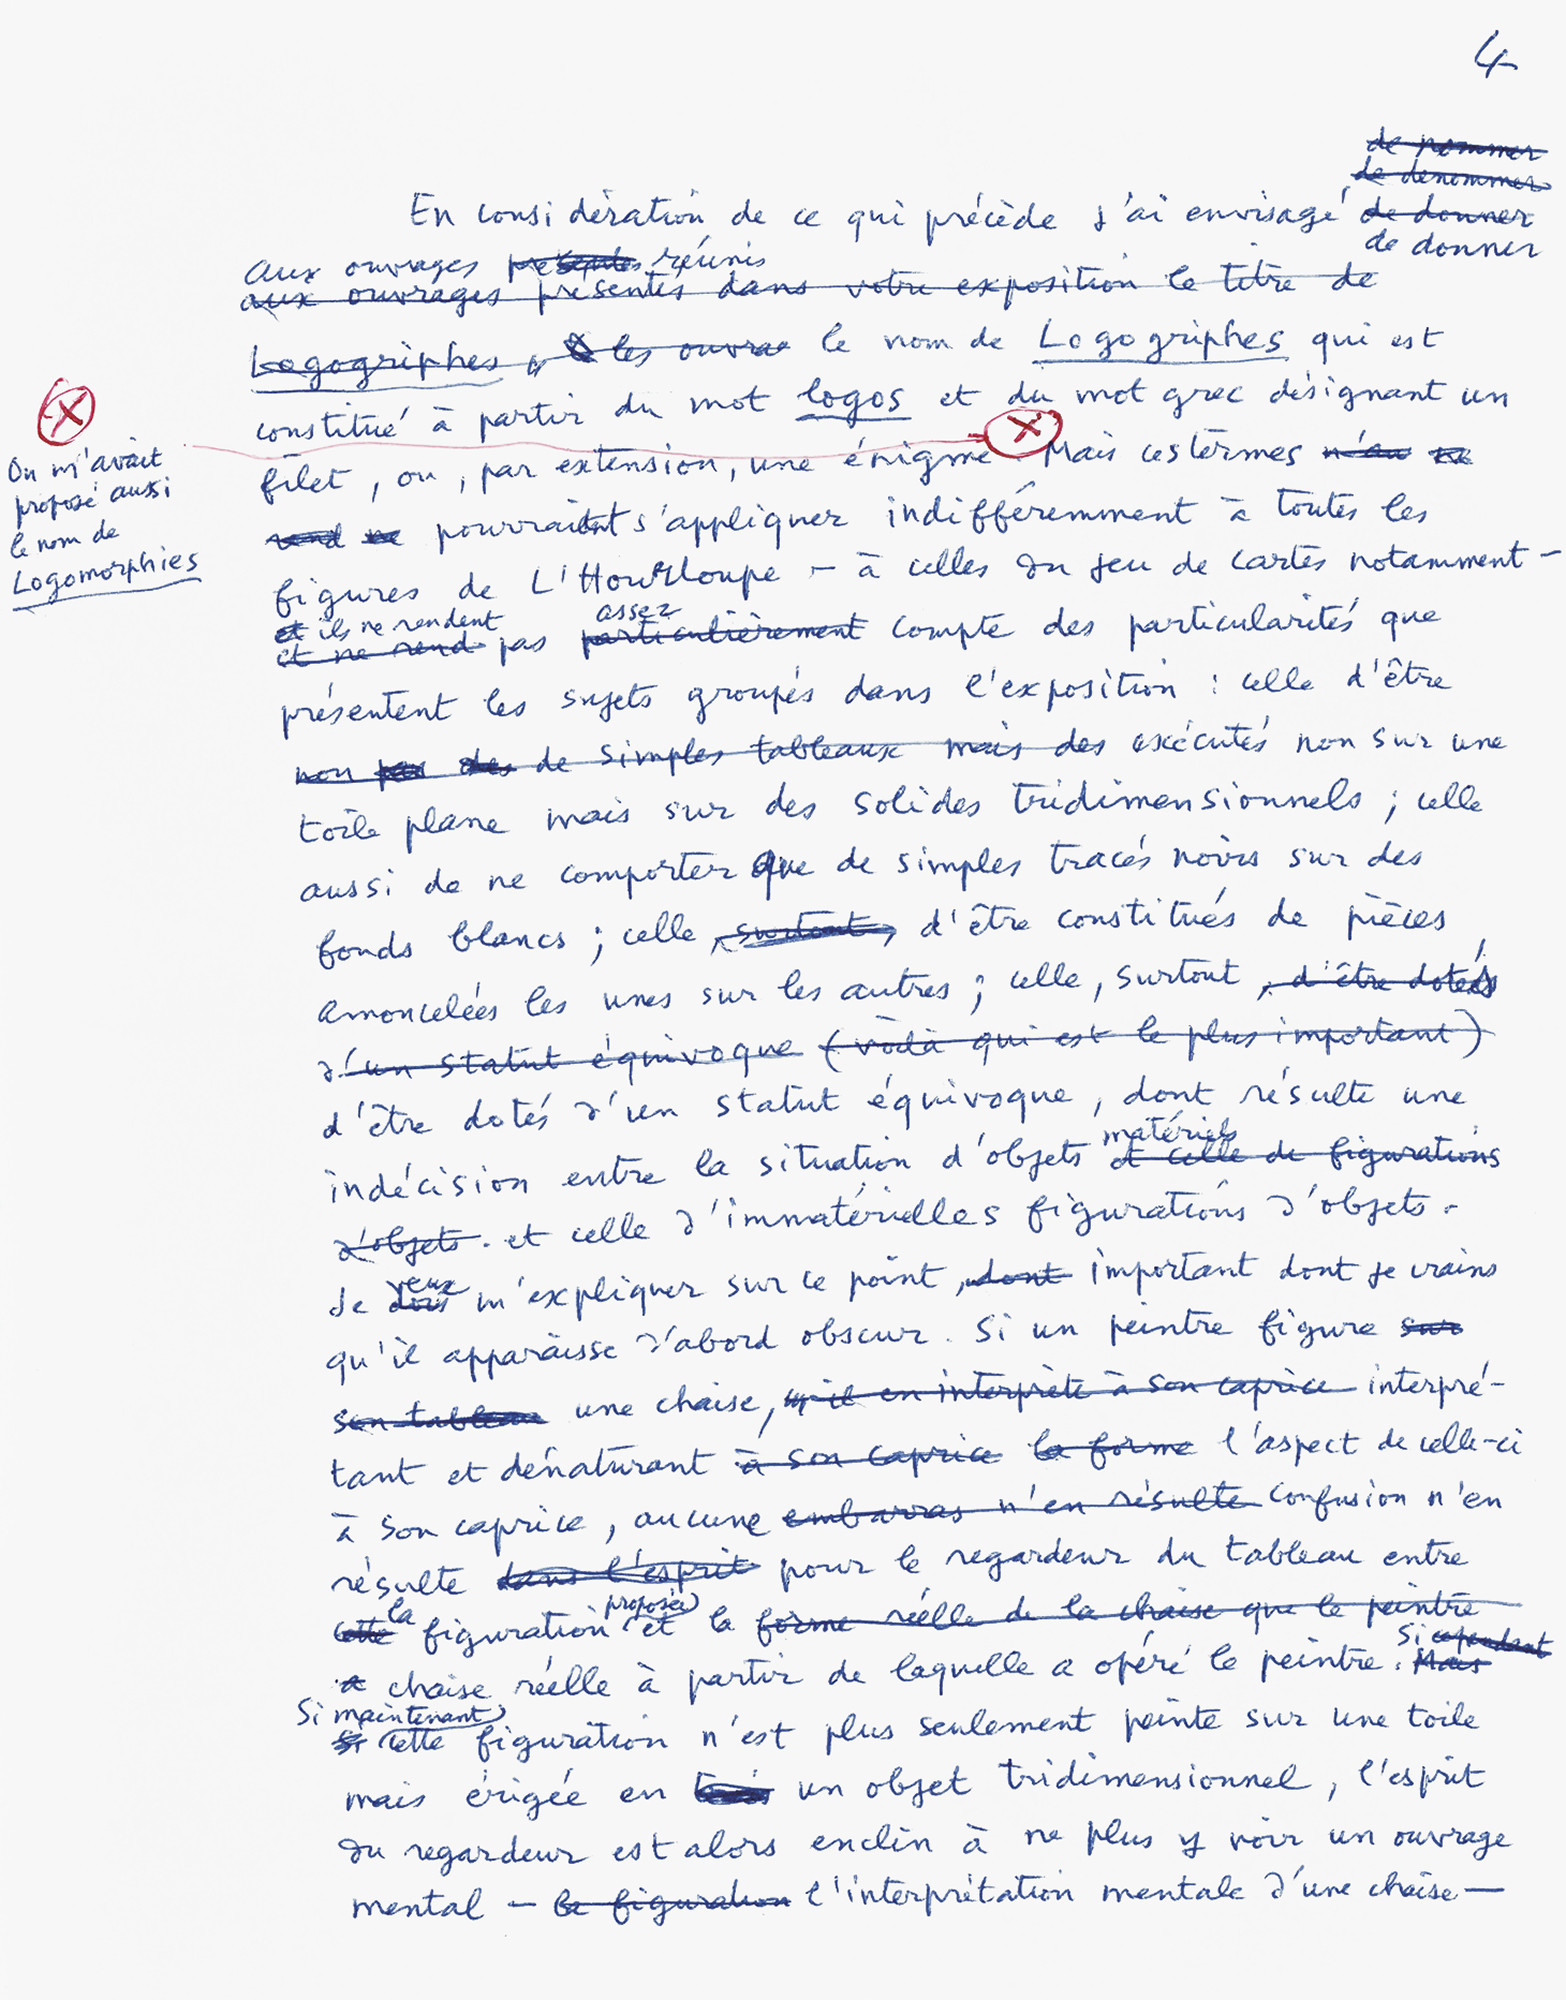 4
de nommer
de dénommer
En considération de ce qui précède j'ai envisagé de donner
de donner
aux ouvrages présentés réunis
aux ouvrages présentés dans votre exposition le titre de
Logogriphes, les ouvra le nom de Logogriphes qui est
constitué à partir du mot logos et du mot grec désignant un
filet, ou, par extension, une énigme. Mais ces termes n'au ne
rend ne pourraient s'appliquer indifféremment à toutes les
figures de L'Hourloupe – à celles du jeu de cartes notamment –
et ils ne rendent assez
et ne rend pas particulièrement compte des particularités que
présentent les sujets groupés dans l'exposition : celle d'être
non pas des de simples tableaux mais des exécutés non sur une
toile plane mais sur des solides tridimensionnels ; celle
aussi de ne comporter que de simples tracés noirs sur des
fonds blancs ; celle, surtout, d'être constitués de pièces
amoncelées les unes sur les autres ; celle, surtout, d'être dotés
d'un statut équivoque (voilà qui est le plus important)
d'être dotés d'un statut équivoque, dont résulte une
matériels
indécision entre la situation d'objets et celle de figurations
d'objets. et celle d'immatérielles figurations d'objets.
veux
Je dois m'expliquer sur ce point, dont important dont je crains
qu'il apparaisse d'abord obscur. Si un peintre figure sur
son tableau une chaise, qu'il en interprète à son caprice interpré-
tant et dénaturant à son caprice la forme l'aspect de celle-ci
à son caprice, aucune embarras n'en résulte confusion n'en
résulte dans l'esprit pour le regardeur du tableau entre
la proposée
cette figuration et la forme réelle de la chaise que le peintre
Si cependant
a chaise réelle à partir de laquelle a opéré le peintre. Mais
Si maintenant
Si cette figuration n'est plus seulement peinte sur une toile
mais érigée en un objet tridimensionnel, l'esprit
du regardeur est alors enclin à ne plus y voir un ouvrage
mental – la figuration l'interprétation mentale d'une chaise –
X
X
On m'avait
proposé aussi
le nom de
Logomorphies